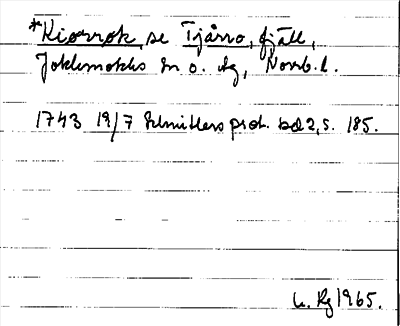 *Kiorrok, se Tjårro, fjäll,
Jokkmokks sn o. lfg, Norrb. l.
1743 19/7 Schnitlers prot. bd 2, s. 185.
U. Rg 1965.